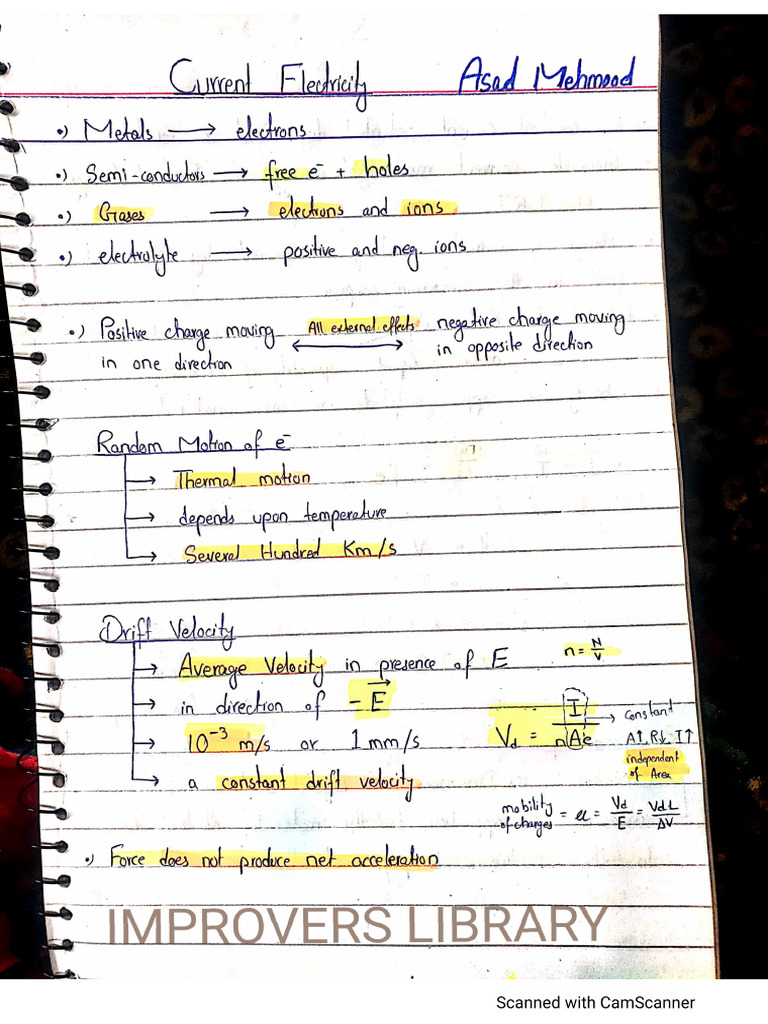 Current Electricity Asad Mehmood
•) Metals → electrons
•) Semi-conductors → free e⁻ + holes
•) Gases → electrons and ions
•) electrolyte → positive and neg. ions
•) Positive charge moving All external effects negative charge moving
in one direction ↔ in opposite direction
Random Motion of e⁻
→ Thermal motion
→ depends upon temperature
→ Several Hundred Km/s
Drift Velocity
→ Average Velocity in presence of E n = N/V
→ in direction of -E⃗
→ 10⁻³ m/s or 1 mm/s Vd = I/nAe → constant
A↑ R↓ I↑
independent
of Area
→ a constant drift velocity
mobility
of charges = μ = Vd/E = VdL/ΔV
•) Force does not produce net acceleration
IMPROVERS LIBRARY
Scanned with CamScanner